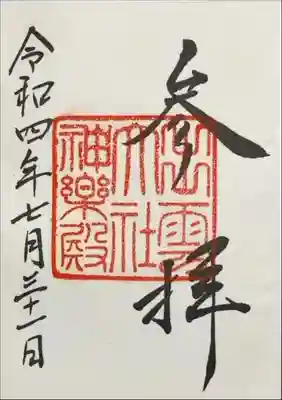 参拝
出雲
大社
神樂殿
令和四年七月三十一日